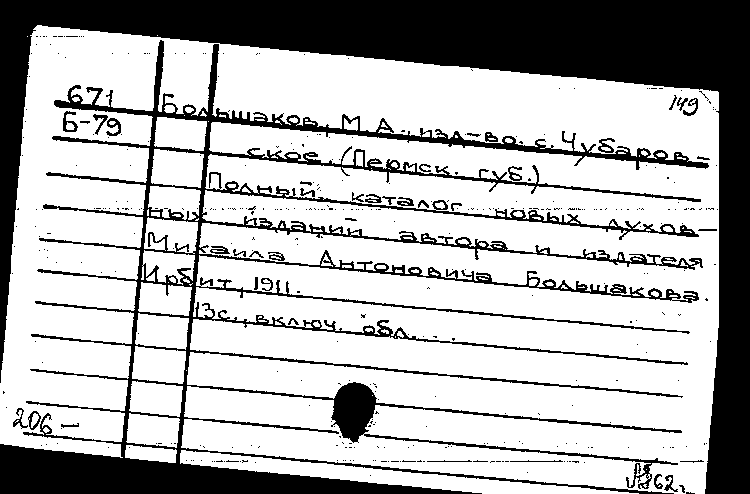 149
671
Б-79
Большаков, М.А., изд-во. с. Чубаров-
ское. (Пермск. губ.)
Полный каталог новых духов-
ных изданий автора и издателя
Михаила Антоновича Большакова.
Ирбит, 1911.
13с., включ. обл.
206 –
62г.